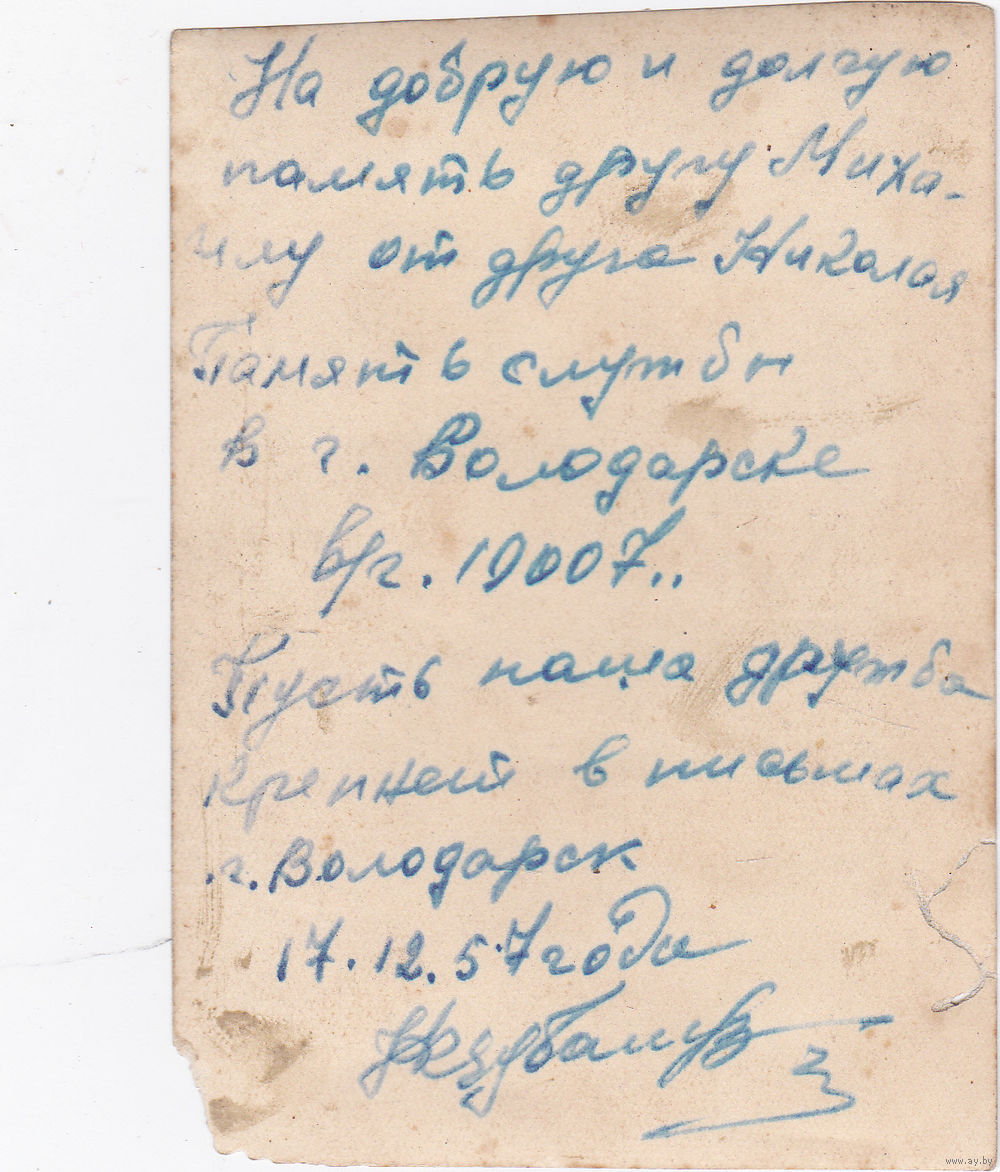 На добрую и долгую
память другу Миха-
илу от друга Николая
Память службы
в г. Володарске
в/г. 19007..
Пусть наша дружба
крепнет в письмах
г. Володарск
17.12.57 года
www.ay.by